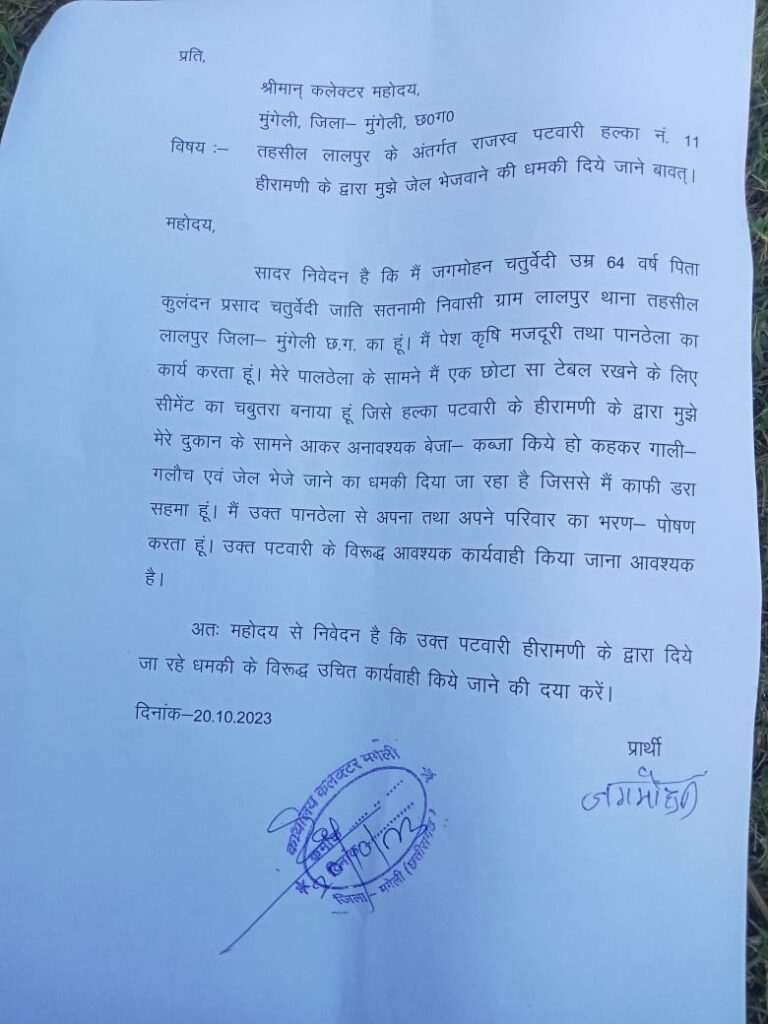 प्रति,
श्रीमान् कलेक्टर महोदय,
मुंगेली, जिला– मुंगेली, छ0ग0
विषय :– तहसील लालपुर के अंतर्गत राजस्व पटवारी हल्का नं. 11
हीरामणी के द्वारा मुझे जेल भेजवाने की धमकी दिये जाने बावत्।
महोदय,
सादर निवेदन है कि मैं जगमोहन चतुर्वेदी उम्र 64 वर्ष पिता
कुलंदन प्रसाद चतुर्वेदी जाति सतनामी निवासी ग्राम लालपुर थाना तहसील
लालपुर जिला– मुंगेली छ.ग. का हूं। मैं पेश कृषि मजदूरी तथा पानठेला का
कार्य करता हूं। मेरे पालठेला के सामने मैं एक छोटा सा टेबल रखने के लिए
सीमेंट का चबुतरा बनाया हूं जिसे हल्का पटवारी के हीरामणी के द्वारा मुझे
मेरे दुकान के सामने आकर अनावश्यक बेजा– कब्जा किये हो कहकर गाली–
गलौच एवं जेल भेजे जाने का धमकी दिया जा रहा है जिससे मैं काफी डरा
सहमा हूं। मैं उक्त पानठेला से अपना तथा अपने परिवार का भरण– पोषण
करता हूं। उक्त पटवारी के विरूद्ध आवश्यक कार्यवाही किया जाना आवश्यक
है।
अतः महोदय से निवेदन है कि उक्त पटवारी हीरामणी के द्वारा दिये
जा रहे धमकी के विरूद्ध उचित कार्यवाही किये जाने की दया करें।
दिनांक–20.10.2023
प्रार्थी
जगमोहन
कार्यालय कलेक्टर मुंगेली
क्रमांक
दिनांक
जिला– मुंगेली (छत्तीसगढ़)